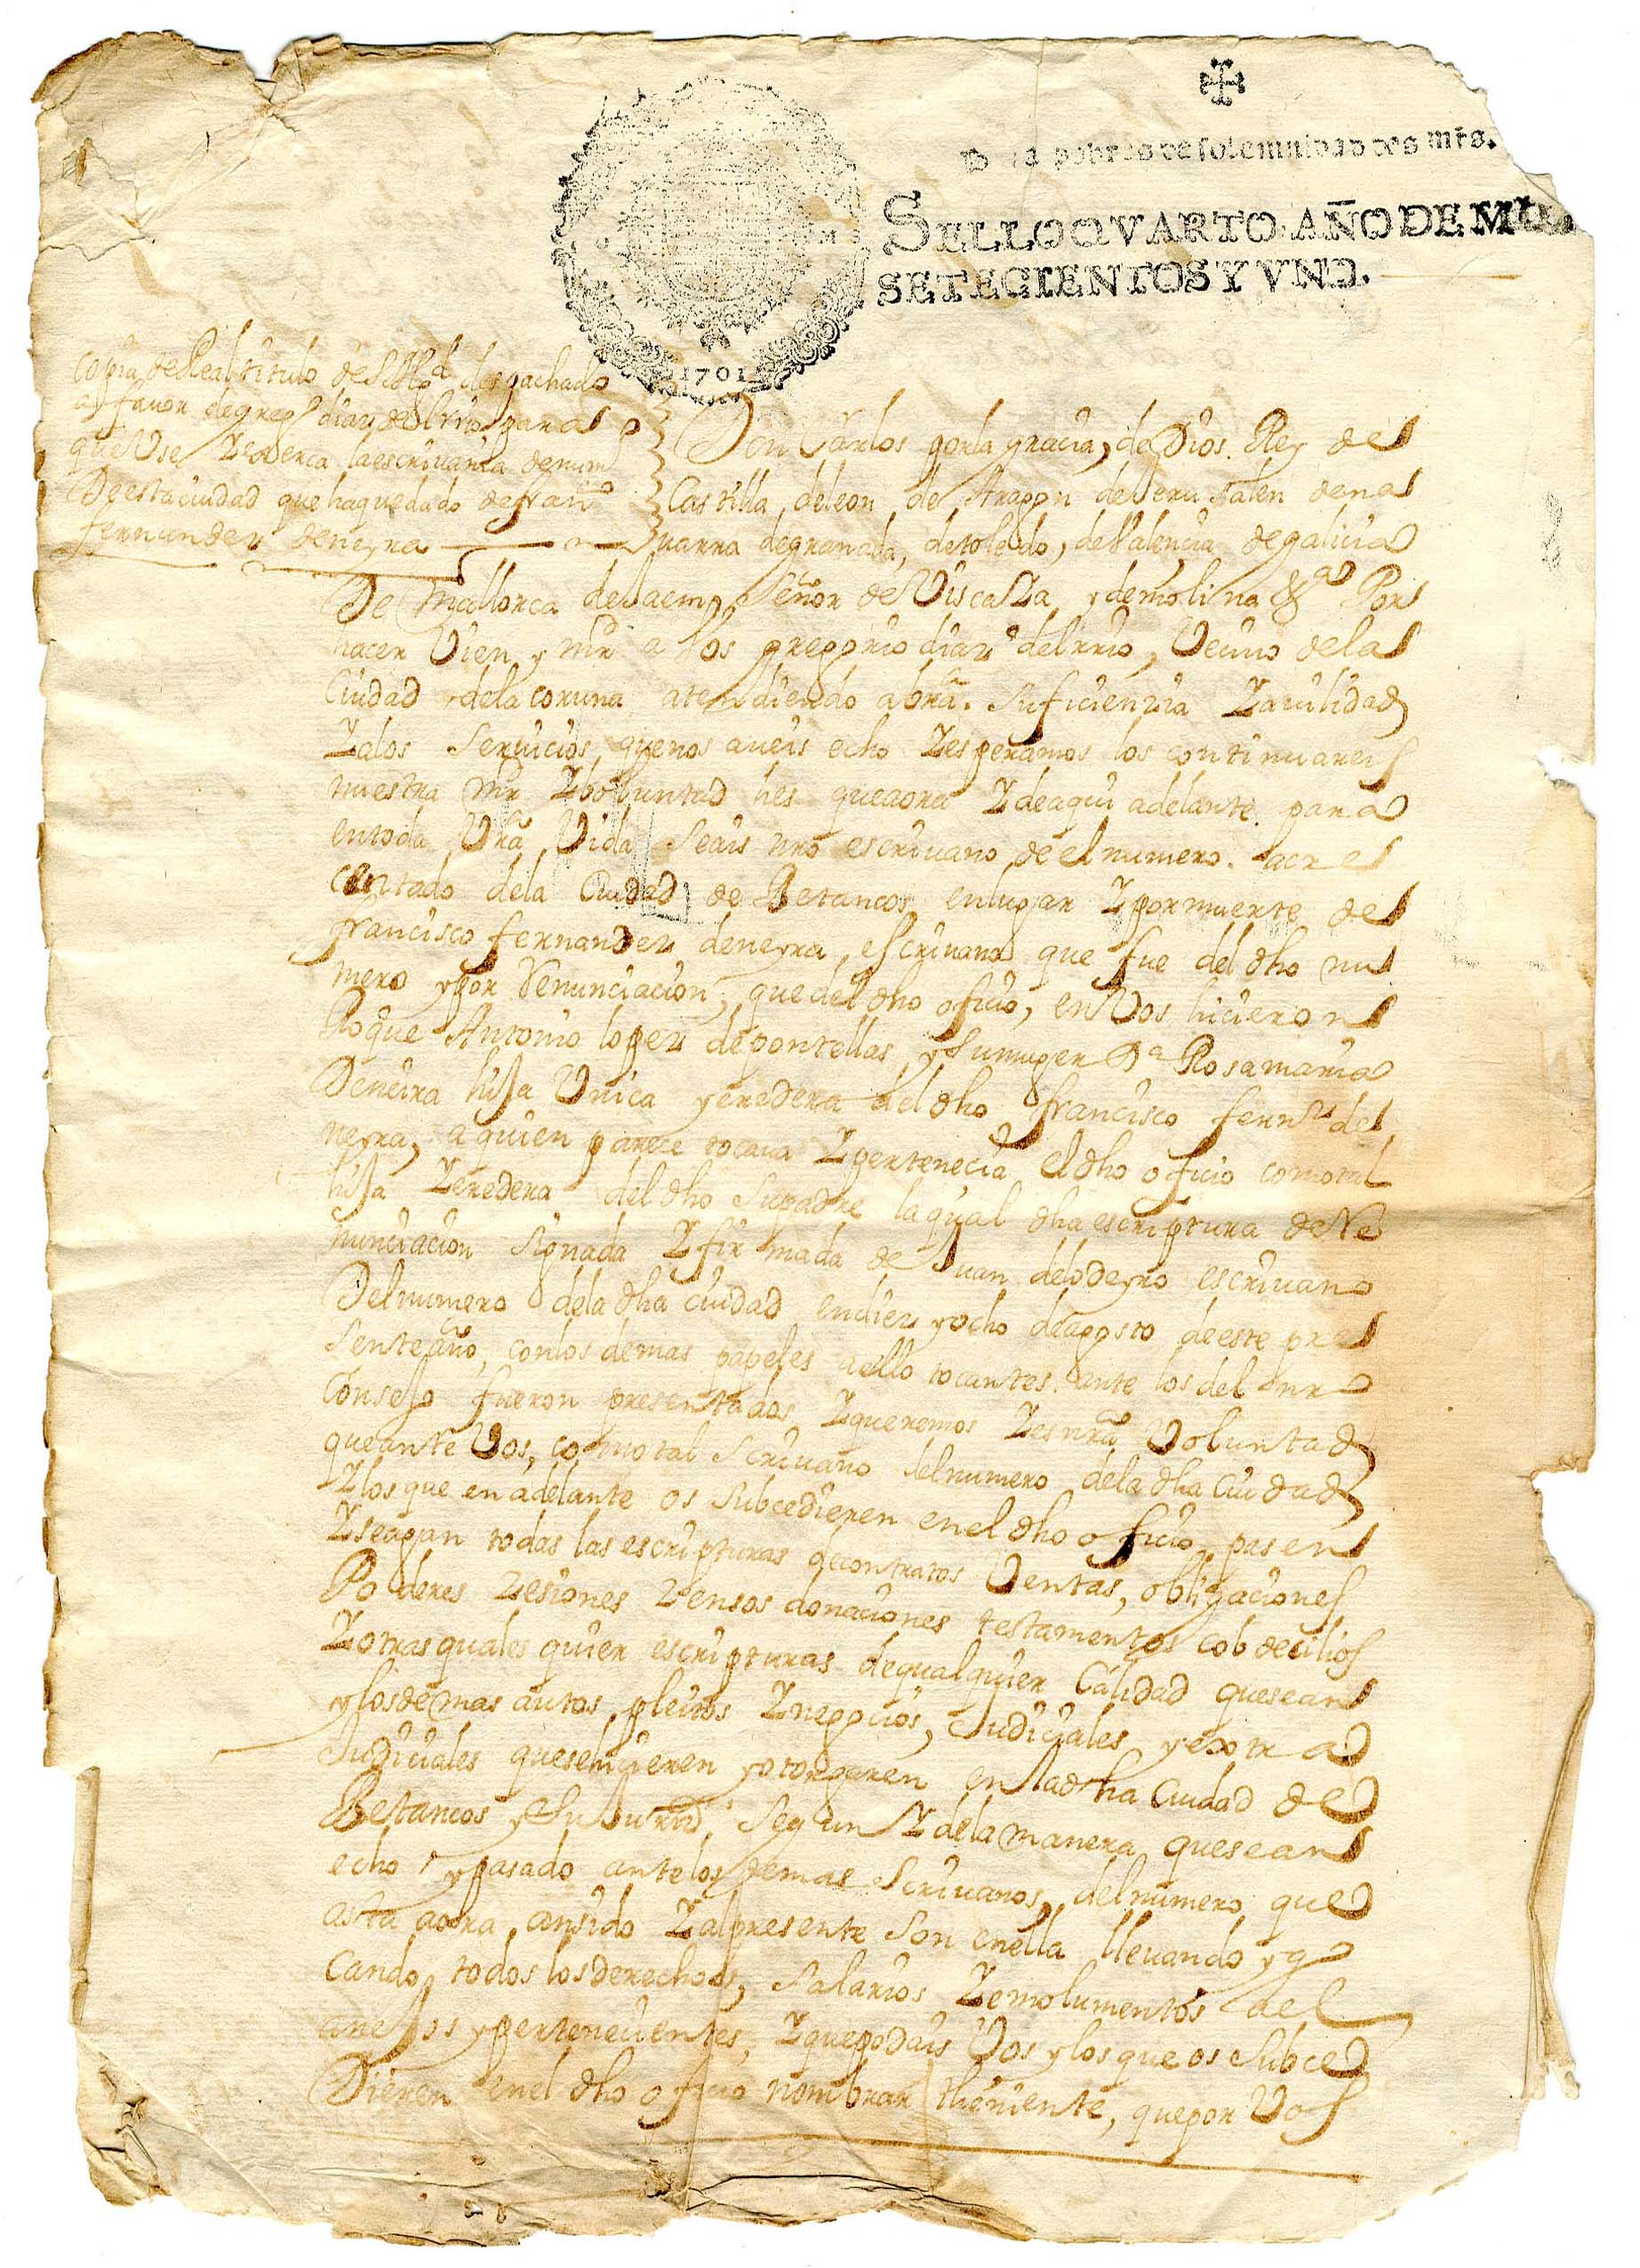 pobres de solemnidad dos mrs.
SELLO QVARTO AÑO DE MIL
SETECIENTOS Y VNO.
1701
copia de Real titulo de S Mgd despachado
a favor de grego diaz del rrio para
que Use Zexerca la escrivania de num
De esta ciudad que ha quedado de fran
fernandez deneyra
Don Carlos por la gracia, de Dios. Rey de
Castilla, de leon, de Aragon de Jerusalen de na
uarra de granada, de toledo, de Valencia de galicia
De Mallorca de Jaem, Señor de Viscaya y de molina &a Por
hacer Vien y mrd a Vos gregorio diaz del rrio, Vecino de la
Ciudad de la coruna atendiendo a bra. Suficienzia Zauilidad
Zalos Seruicios, que nos aueis echo Zesperamos los continuareis
nuestra mrd Zboluntad hes que aora Zde aqui adelante. para
en toda Vra Vida Seais nro escriuano de el numero. acre
centado de la Ciudad de Betancos en lugar Zpor muerte de
francisco fernandez deneyra, escriuano que fue del dho nu
mero y por Renunciacion, que del dho oficio, en Vos hicieron
Roque Antonio lopez de pontellas, y Su muger Da Rosa maria
Deneira hija Vnica y eredera del dho francisco fernz de
neyra, a quien parece tocaua Zpertenecia el dho oficio como tal
hija Zeredera del dho Su padre la qual dha escriptura de Re
nunciacion Signada Zfirmada de Juan delodeyro escriuano
Del numero de la dha ciudad en diez y ocho de agosto de este pre
Sente año, con los demas papeles a ello tocantes. ante los del nro
Consejo fueron presentados Zqueremos Zes nra Voluntad
que ante Vos, como tal Scriuano del numero de la dha Ciudad
Zlos que en adelante os Subcedieren en el dho oficio, pasen
Zseagan todas las escripturas de contratos Ventas, obligaciones
Poderes zesiones zensos donaciones testamentos cobdecilios
Zotras quales quier escripturas de qualquier Calidad que sean
y los demas autos, pleitos Znegocios, Judiciales y extra
Judiciales que se hicieren y otorgaren en la dha Ciudad de
Betancos y Su Jurid Segun Zde la manera que sean
echo y pasado ante los demas Scriuanos, del numero que
asta aora, an sido Zal presente Son en ella lleuando y go
cando, todos los derechos, Salarios Zemolumentos ael
anejos y pertenecientes, Zque podais Vos y los que os Subce
Dieren en el dho oficio nombrar theniente, que por Vos